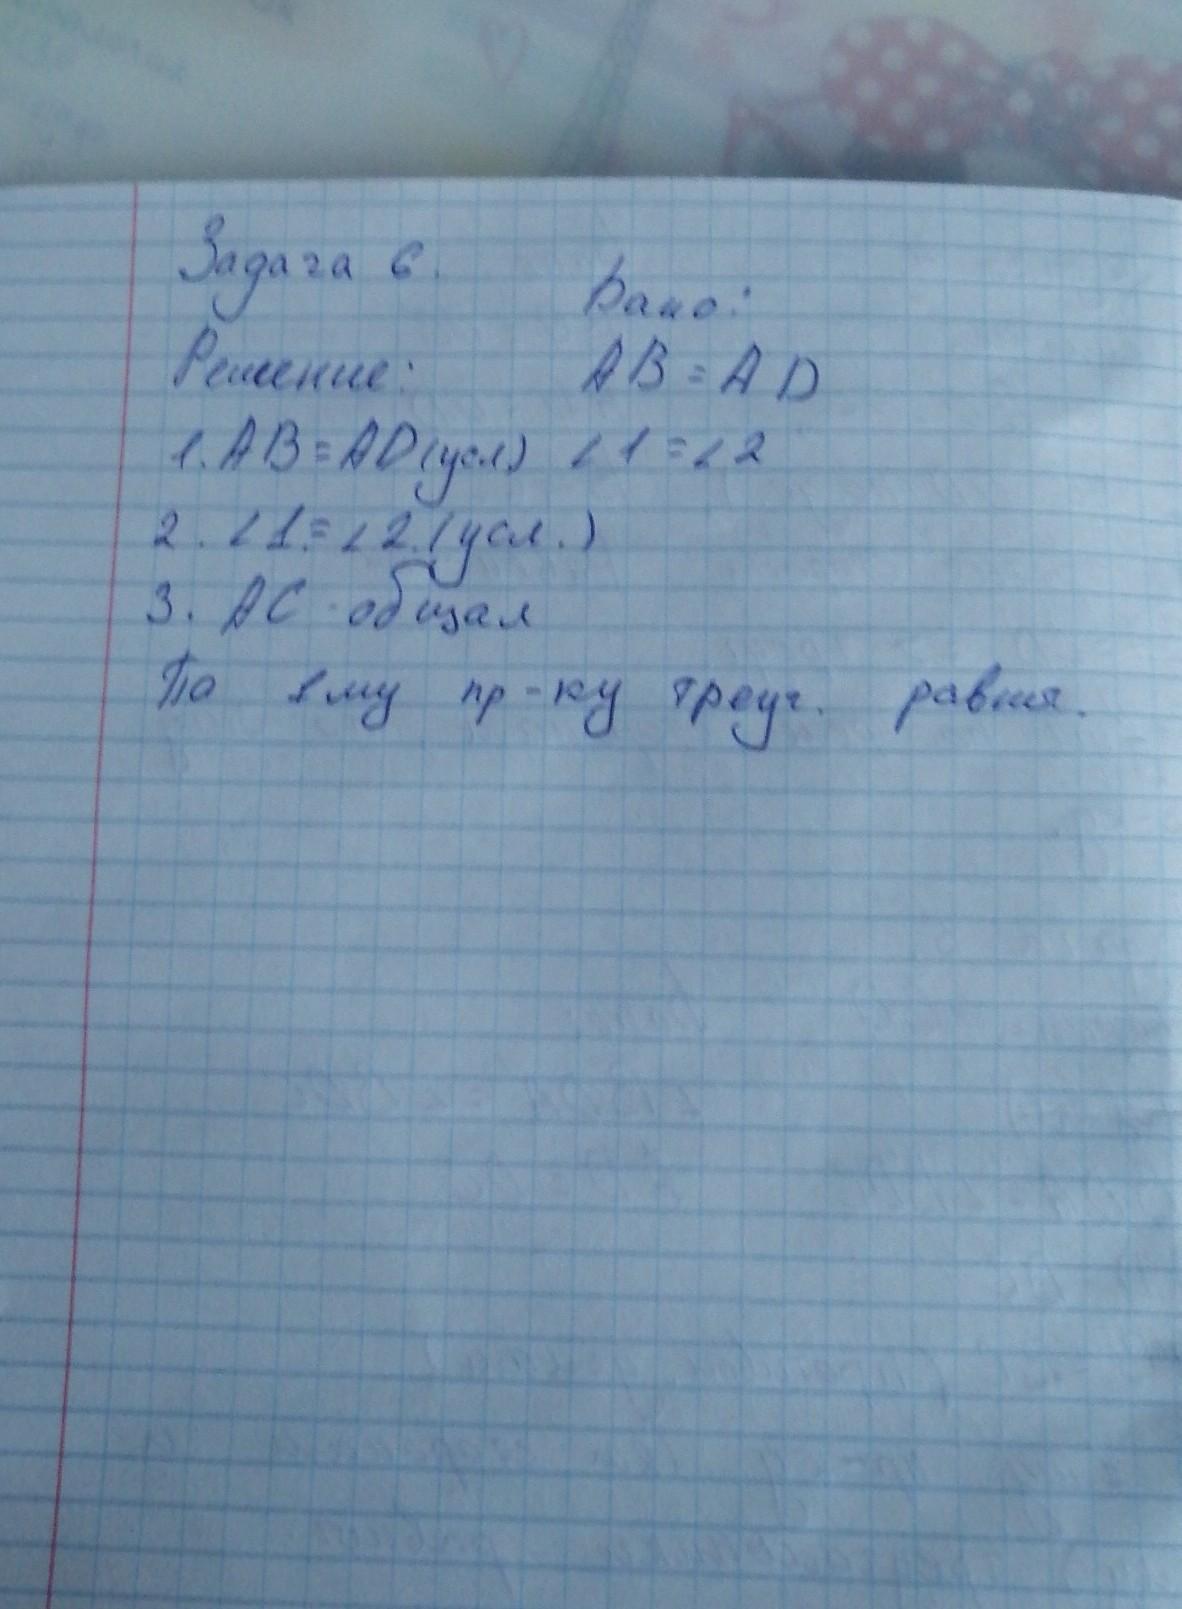 Задача 6.
Дано:
Решение:
AB = AD
1. AB = AD (усл)
∠1 = ∠2
2. ∠1 = ∠2. (усл.)
3. AC - общая
По 1му пр-ку треуг. равны.